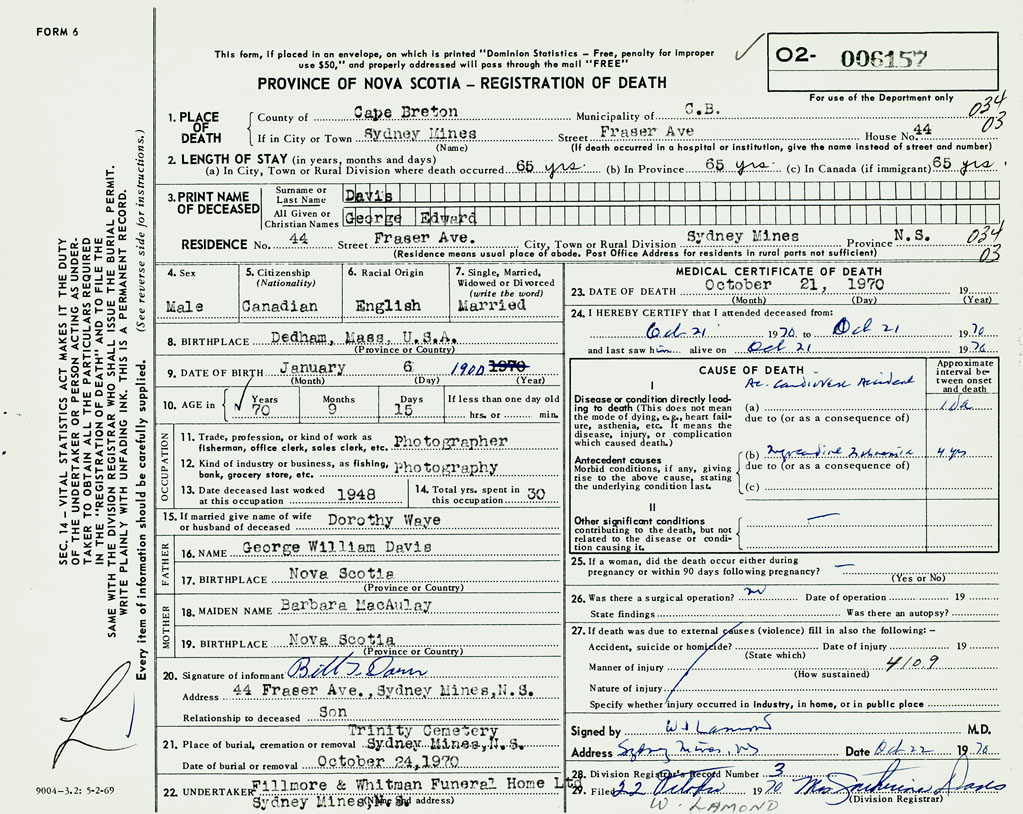 FORM 6
This form, if placed in an envelope, on which is printed "Dominion Statistics – Free, penalty for improper
use $50," and properly addressed will pass through the mail "FREE"
PROVINCE OF NOVA SCOTIA – REGISTRATION OF DEATH
O2- 006157
For use of the Department only
034
03
1. PLACE OF DEATH
County of Cape Breton Municipality of C.B.
If in City or Town Sydney Mines Street Fraser Ave House No. 44
(Name) (If death occurred in a hospital or institution, give the name instead of street and number)
2. LENGTH OF STAY (in years, months and days)
(a) In City, Town or Rural Division where death occurred 65 yrs. (b) In Province 65 yrs. (c) In Canada (if immigrant) 65 yrs.
3. PRINT NAME OF DECEASED
Surname or Last Name Davis
All Given or Christian Names George Edward
RESIDENCE No. 44 Street Fraser Ave. City, Town or Rural Division Sydney Mines Province N.S. 034
(Residence means usual place of abode. Post Office Address for residents in rural parts not sufficient) 03
4. Sex
Male
5. Citizenship (Nationality)
Canadian
6. Racial Origin
English
7. Single, Married, Widowed or Divorced (write the word)
Married
8. BIRTHPLACE Dedham, Mass, U.S.A.
(Province or Country)
9. DATE OF BIRTH January 6 1900 1970
(Month) (Day) (Year)
10. AGE in Years Months Days If less than one day old
70 9 15 hrs. or min.
OCCUPATION
11. Trade, profession, or kind of work as
fisherman, office clerk, sales clerk, etc. Photographer
12. Kind of industry or business, as fishing,
bank, grocery store, etc. Photography
13. Date deceased last worked at this occupation 1948
14. Total yrs. spent in this occupation 30
15. If married give name of wife
or husband of deceased Dorothy Waye
FATHER
16. NAME George William Davis
17. BIRTHPLACE Nova Scotia
(Province or Country)
MOTHER
18. MAIDEN NAME Barbara MacAulay
19. BIRTHPLACE Nova Scotia
(Province or Country)
20. Signature of informant
Address 44 Fraser Ave., Sydney Mines, N.S.
Relationship to deceased Son
Trinity Cemetery
21. Place of burial, cremation or removal Sydney Mines, N.S.
Date of burial or removal October 24, 1970
22. UNDERTAKER Fillmore & Whitman Funeral Home Ltd
Sydney Mines, N.S.
(Name and address)
MEDICAL CERTIFICATE OF DEATH
23. DATE OF DEATH October 21, 1970 19
(Month) (Day) (Year)
24. I HEREBY CERTIFY that I attended deceased from:
Oct 21 1970 to Oct 21 1970
and last saw him alive on Oct 21 1970
CAUSE OF DEATH
Approximate interval between onset and death
I
Disease or condition directly leading to death (This does not
mean the mode of dying, e.g., heart failure, asthenia, etc. It means the
disease, injury, or complication
which caused death.)
(a)
due to (or as a consequence of)
Antecedent causes
Morbid conditions, if any, giving
rise to the above cause, stating
the underlying condition last.
(b) 4 yrs
due to (or as a consequence of)
(c)
II
Other significant conditions
contributing to the death, but not
related to the disease or condition
causing it.
25. If a woman, did the death occur either during
pregnancy or within 90 days following pregnancy?
(Yes or No)
26. Was there a surgical operation? no Date of operation 19
State findings Was there an autopsy?
27. If death was due to external causes (violence) fill in also the following: –
Accident, suicide or homicide? Date of injury 19
(State which)
Manner of injury 4109
(How sustained)
Nature of injury
Specify whether injury occurred in industry, in home, or in public place
Signed by W Lamond M.D.
Address Sydney Mines, NS Date Oct 22 1970
28. Division Registrar's Record Number 3
29. Filed 22 October 1970
(Division Registrar)
W. LAMOND
SEC. 14 – VITAL STATISTICS ACT MAKES IT THE DUTY
OF THE UNDERTAKER OR PERSON ACTING AS UNDER-
TAKER TO OBTAIN ALL THE PARTICULARS REQUIRED
IN THE "REGISTRATION OF DEATH" AND TO FILE THE
SAME WITH THE DIVISION REGISTRAR WHO SHALL ISSUE THE BURIAL PERMIT.
WRITE PLAINLY WITH UNFADING INK. THIS IS A PERMANENT RECORD.
Every item of information should be carefully supplied. (See reverse side for instructions.)
9004-3.2: 5-2-69